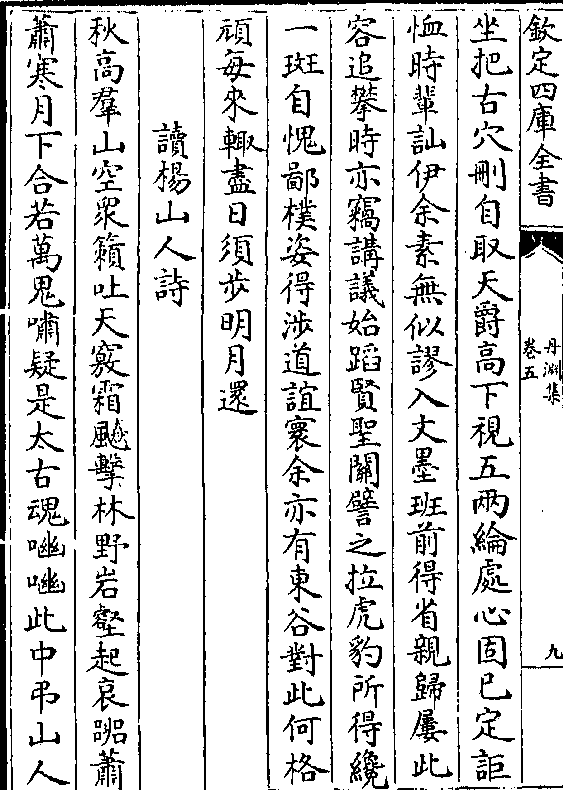 欽定四庫全書
丹淵集
卷五
九
坐把古穴刪自取天爵高下視五兩綸處心固已定詎
恤時輩訕伊余素無似謬入文墨班前得省親歸屢此
容追攀時亦竊講議始蹈賢聖關譬之拉虎豹所得纔
一斑自愧鄙樸姿得涉道誼寰余亦有東谷對此何格
頑每來輙盡日須步明月還
讀楊山人詩
秋高羣山空衆籟吐天竅霜飈擊林野岩壑起哀嘂蕭
蕭寒月下合若萬鬼嘯疑是太古魂呦呦此中弔山人